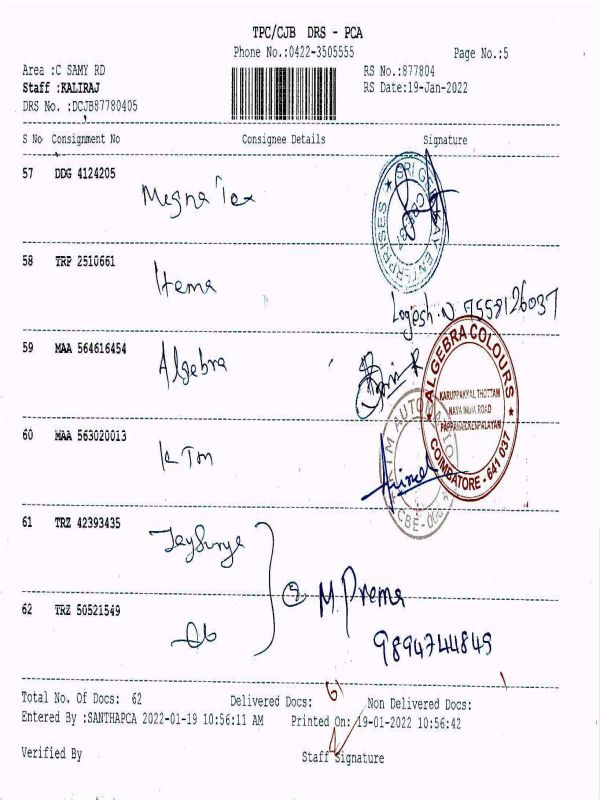 TPC/CJB DRS - PCA
Phone No.:0422-3505555 Page No.:5
Area :C SAMY RD RS No.:877804
Staff :KALIRAJ RS Date:19-Jan-2022
DRS No. :DCJB87780405
S No Consignment No Consignee Details Signature
57 DDG 4124205
Megna Tex
ENTERPRISES
58 TRP 2510661
Hema
Logesh.N
59 MAA 564616454
Algebra
ALGEBRA COLOURS
KARUPPAKKAL THOTTAM
NAVA INDIA ROAD
PAPPANAICKENPALAYAM
COIMBATORE - 641 037
60 MAA 563020013
K Tm
61 TRZ 42393435
Jaysurya
M. Prema
9894744849
62 TRZ 50521549
do
Total No. Of Docs: 62 Delivered Docs: 61 Non Delivered Docs: 1
Entered By :SANTHAPCA 2022-01-19 10:56:11 AM Printed On: 19-01-2022 10:56:42
Verified By Staff Signature